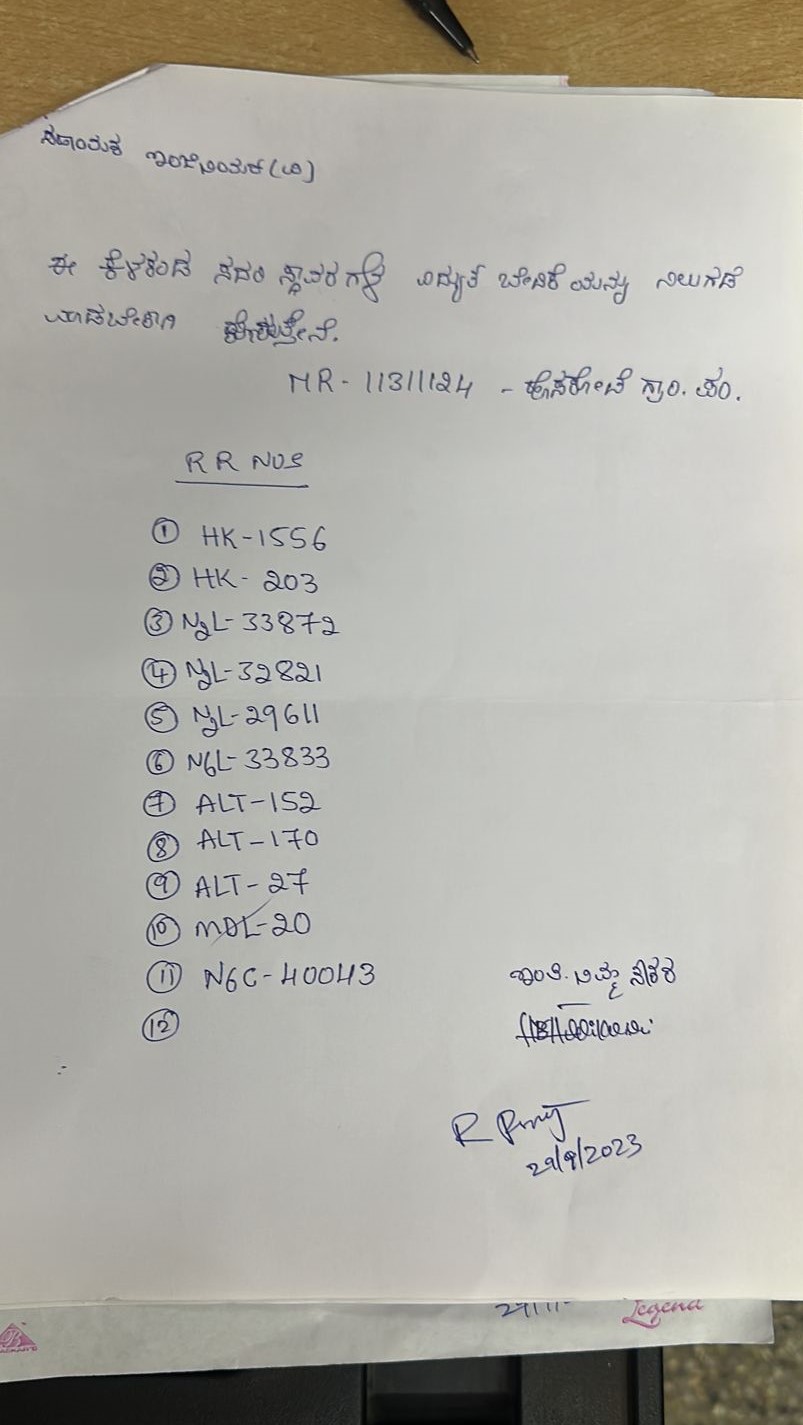 ಸಹಾಯಕ ಇಂಜಿನಿಯರ್ (ವಿ)
ಈ ಕೆಳಕಂಡ ಸದರಿ ಸ್ಥಾವರಗಳ ವಿದ್ಯುತ್ ಬೇಡಿಕೆಯನ್ನು ನಿಲುಗಡೆ
ಮಾಡಬೇಕಾಗಿ ಕೋರುತ್ತೇನೆ.
MR - 11311124 - ಹೊಸಕೋಟೆ ಗ್ರಾಂ. ಪಂ.
RR NOS
① HK-1556
② HK- 203
③ NJL-33872
④ NJL-32821
⑤ NJL-29611
⑥ NGL-33833
⑦ ALT-152
⑧ ALT-170
⑨ ALT-27
⑩ MDL-20
⑪ NGC-40043
ಇಂತಿ. ನಿಮ್ಮ
⑫
29/9/2023
Legend